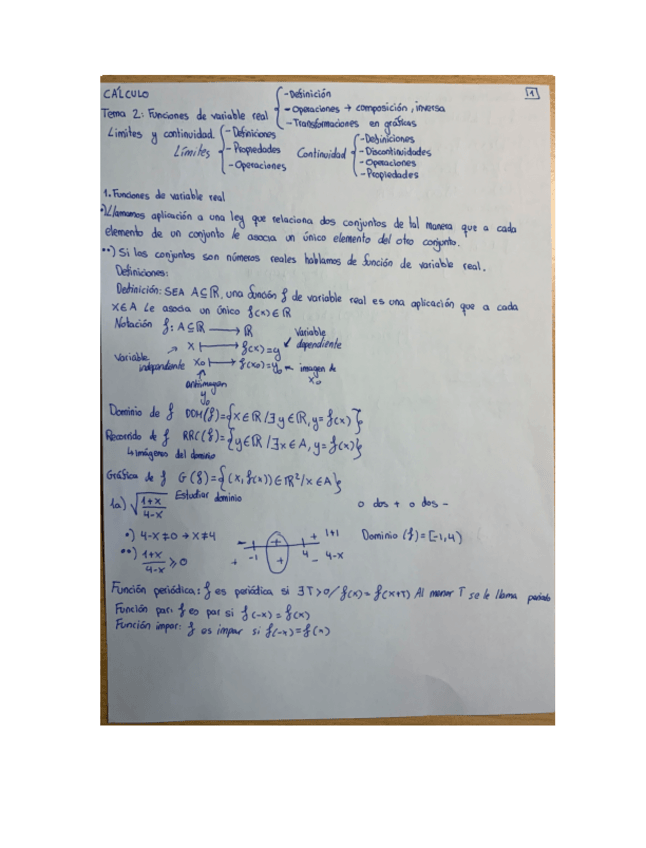 CÁLCULO
1
Tema 2: Funciones de variable real { -Definición
-Operaciones → composición, inversa
-Transformaciones en gráficas
Límites y continuidad.
Límites { -Definiciones
-Propiedades
-Operaciones
Continuidad { -Definiciones
-Discontinuidades
-Operaciones
-Propiedades
1. Funciones de variable real
•) Llamamos aplicación a una ley que relaciona dos conjuntos de tal manera que a cada
elemento de un conjunto le asocia un único elemento del otro conjunto.
••) Si los conjuntos son números reales hablamos de función de variable real.
Definiciones:
Definición: SEA A⊆ℝ, una función f de variable real es una aplicación que a cada
x∈A le asocia un único f(x)∈ℝ
Notación f: A⊆ℝ ⟶ ℝ
x ⟼ f(x)=y ↙ Variable dependiente
Variable independiente ↗
x₀ ⟼ f(x₀)=y₀ ← imagen de x₀
↑
antimagen
y₀
Dominio de f DOM(f)={x∈ℝ/∃y∈ℝ, y=f(x)}
Recorrido de f RRC(f)={y∈ℝ/∃x∈A, y=f(x)}
↳ imágenes del dominio
Gráfica de f G(f)={(x, f(x))∈ℝ²/x∈A}
1a) √((1+x)/(4-x)) Estudiar dominio
o dos + o dos -
•) 4-x≠0 → x≠4
••) (1+x)/(4-x) ≥ 0
- + + 1+1
-1 4
+ + - 4-x
Dominio (f)=[-1,4)
Función periódica: f es periódica si ∃T>0/f(x)=f(x+T) Al menor T se le llama periodo
Función par: f es par si f(-x)=f(x)
Función impar: f es impar si f(-x)=f(x)